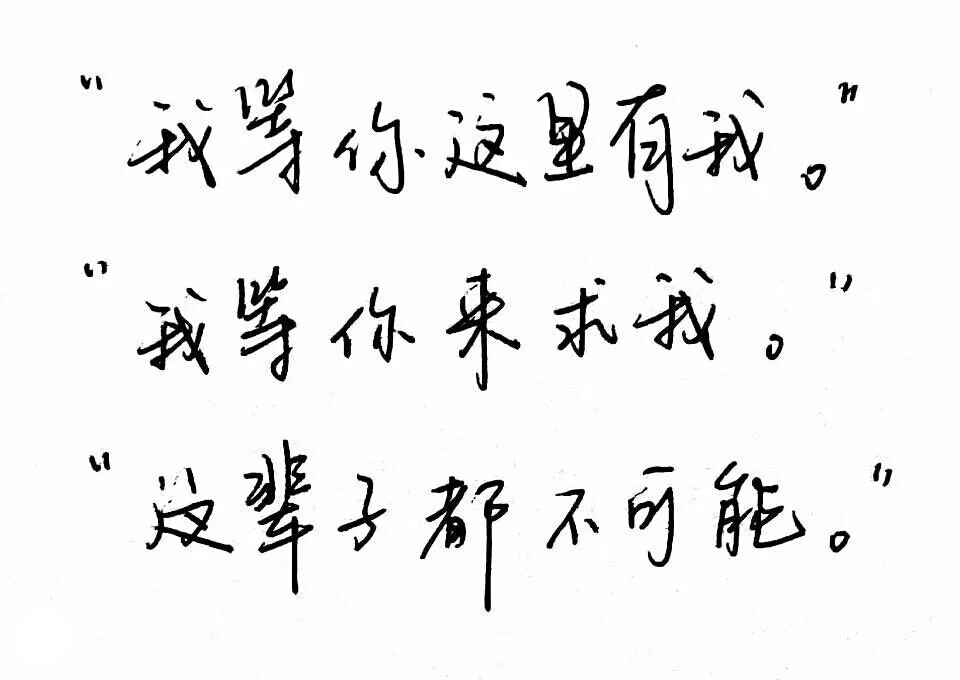 “我等你这里有我。”
“我等你来求我。”
“这辈子都不可能。”